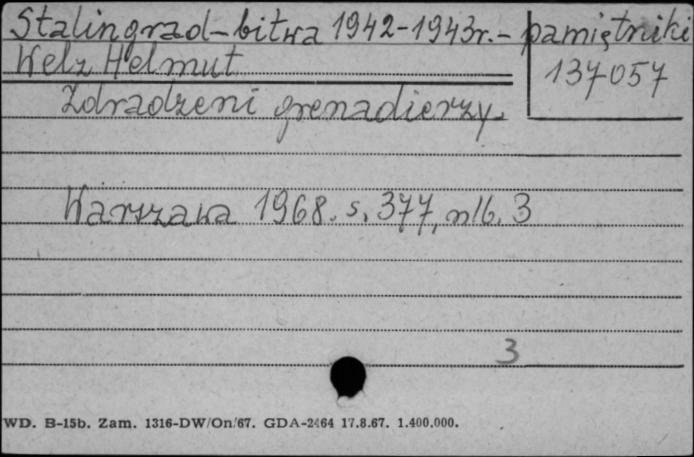 Stalingrad-bitwa 1942-1943r.- pamiętniki
Welz Helmut
137057
Zdradzeni grenadierzy.
Warszawa 1968. s. 377, nlb. 3
3
WD. B-15b. Zam. 1316-DW/On/67. GDA-2464 17.8.67. 1.400.000.